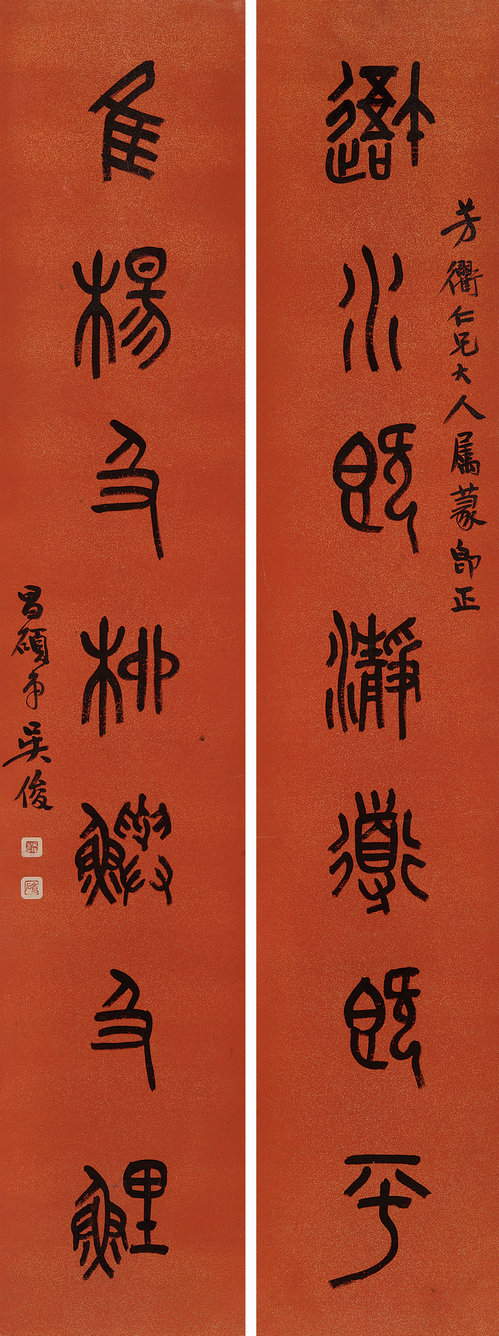 水既瀞導既平
芳衢仁兄大人属篆即正
隹楊及柳鱮及鯉
昌碩弟吳俊